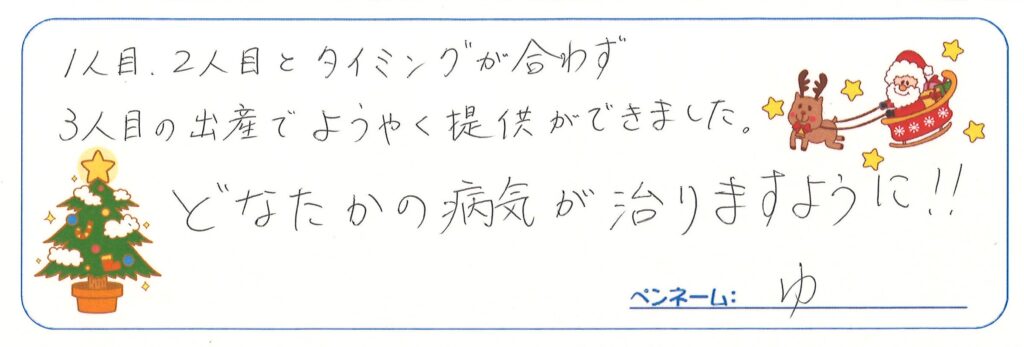 1人目、2人目とタイミングが合わず
3人目の出産でようやく提供ができました。
どなたかの病気が治りますように!!
ペンネーム: ゆ